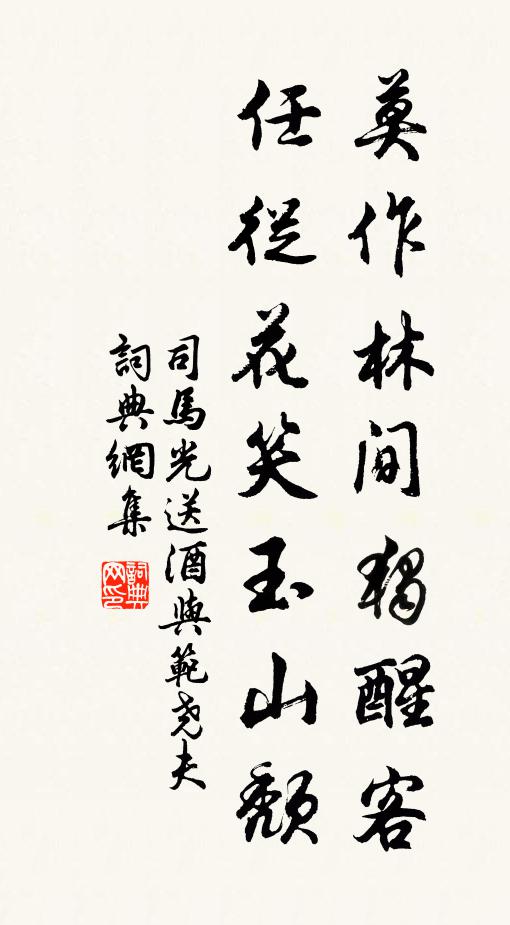 莫作林間獨醒客
任從花笑玉山頹
司馬光送酒與範堯夫
詞典網集
詞典网印